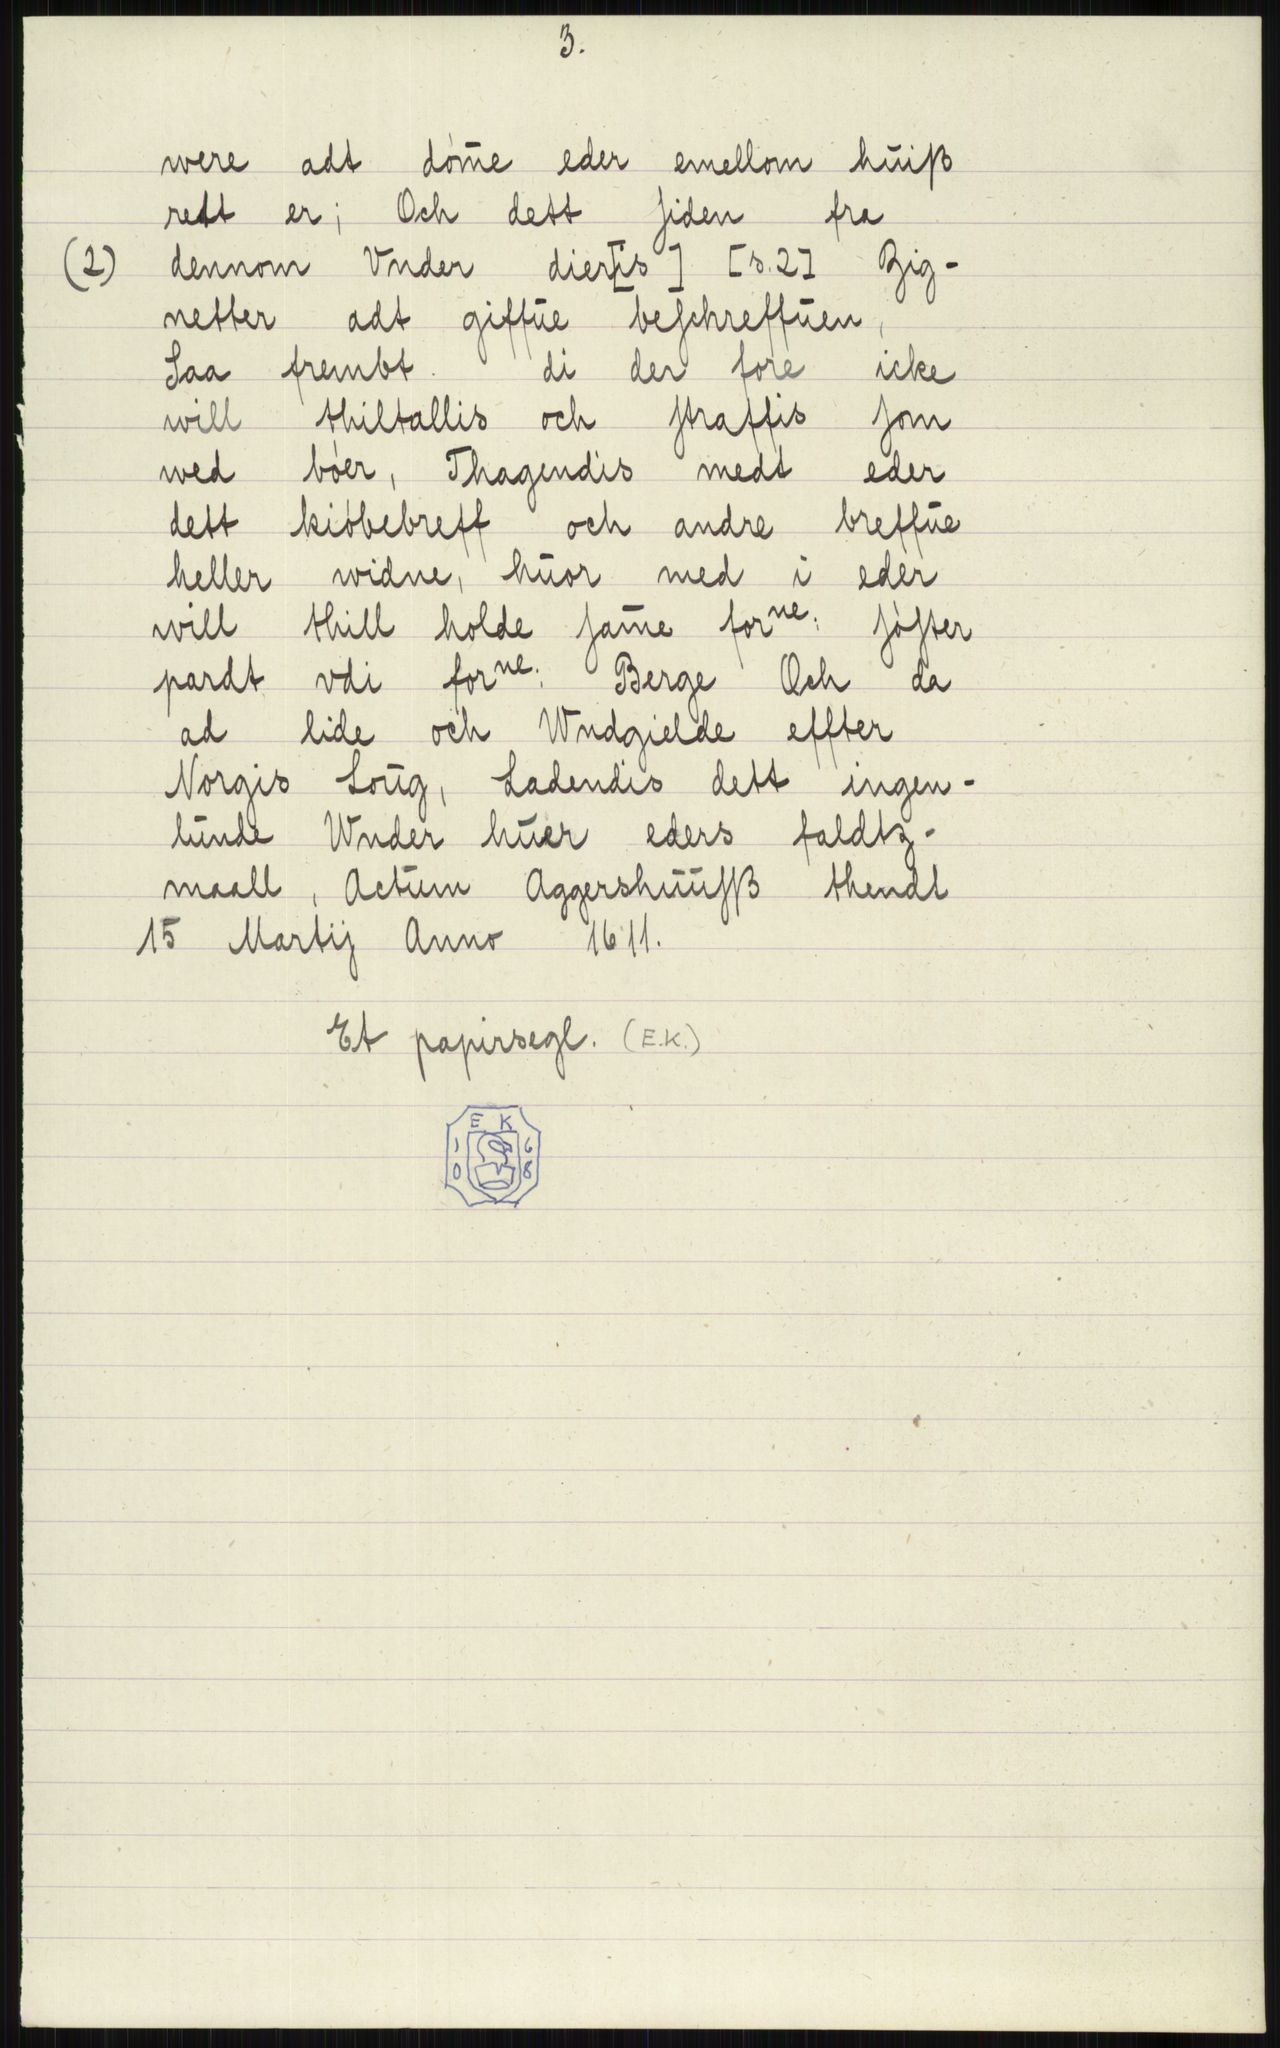 3.
were adt dóm̄e eder emellom huiß
rett er; Och dett ſiden fra
(2) dennom Vnder dier[is] [s.2] Zig-
netter adt giffūe beſchreffūen,
Saa frembt. di der fore icke
will thiltallis och ſtraffis ſom
wed bóer, Thagendis medt eder
dett kióbebreff och andre breffūe
heller widne, hūor med i eder
will thill holde ſam̄e forⁿᵉ: ſóſter
pardt vdi forⁿᵉ: Berge Och da
ad lide och Wndgielde effter
Norgis Loūg, Ladendis dett ingen-
lūnde Wnder hūer eders faldtz-
maall, Actūm Aggershūūſß thendt
15 Martij Anno 1611.
Et papirsegl. (E.K.)
E K
1 6
0 8